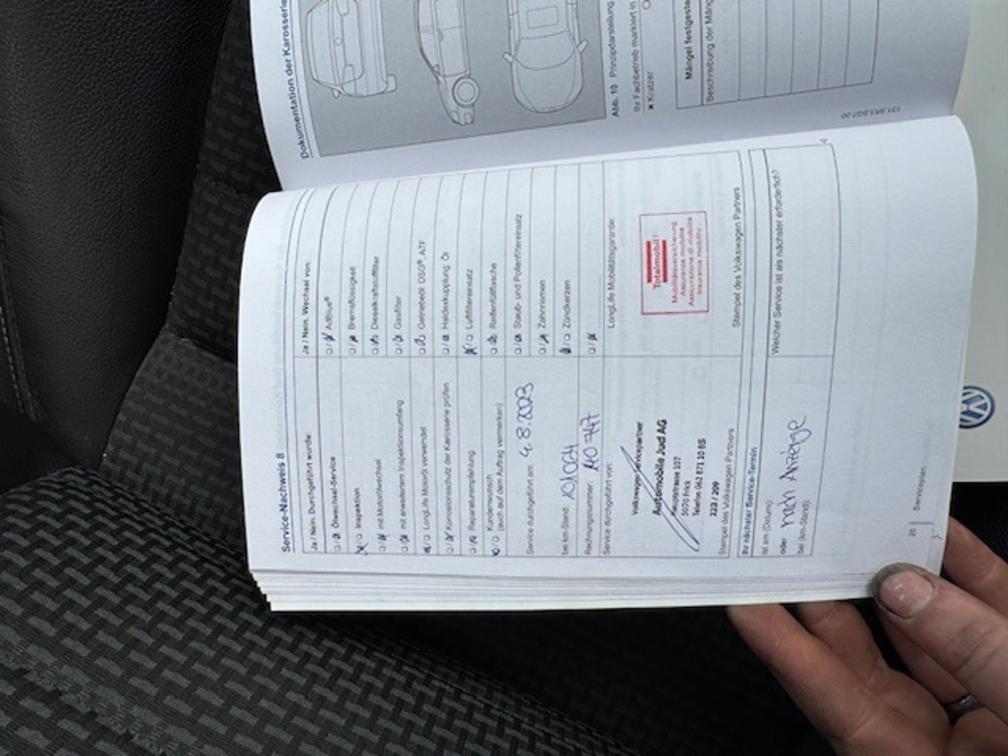 Dokumentation der Karosserie
Abb. 10 Prinzipdarstellung
Ihr Fachbetrieb markiert in
× Kratzer
Mängel festgeste
Beschreibung der Mäng
Service-Nachweis 8
Ja / Nein. Durchgeführt wurde:
Ölwechsel-Service
Inspektion
mit Motorölwechsel
mit erweitertem Inspektionsumfang
LongLife Motoröl verwendet
Korrosionsschutz der Karosserie prüfen
Reparaturempfehlung
Kundenwunsch
(auch auf dem Auftrag vermerken)
Service durchgeführt am: 4.8.2023
bei km-Stand:
Rechnungsnummer:
Service durchgeführt von:
Volkswagen Servicepartner
Automobile Jud AG
Hauptstrasse 107
5070 Frick
Telefon 062 871 10 65
223 / 209
Stempel des Volkswagen Partners
Ja / Nein. Wechsel von:
AdBlue®
Bremsflüssigkeit
Dieselkraftstofffilter
Gasfilter
Getriebeöl DSG®, ATF
Haldexkupplung: Öl
Luftfiltereinsatz
Reifenfüllflasche
Staub- und Pollenfiltereinsatz
Zahnriemen
Zündkerzen
LongLife Mobilitätsgarantie:
Totalmobil!
Mobilitätsversicherung
Assurance mobilité
Assicurazione di mobilità
Insurance mobility
Stempel des Volkswagen Partners
Ihr nächster Service-Termin
Ist am (Datum):
oder nach Anzeige
bei (km-Stand):
Welcher Service ist als nächster erforderlich?
20 Serviceplan